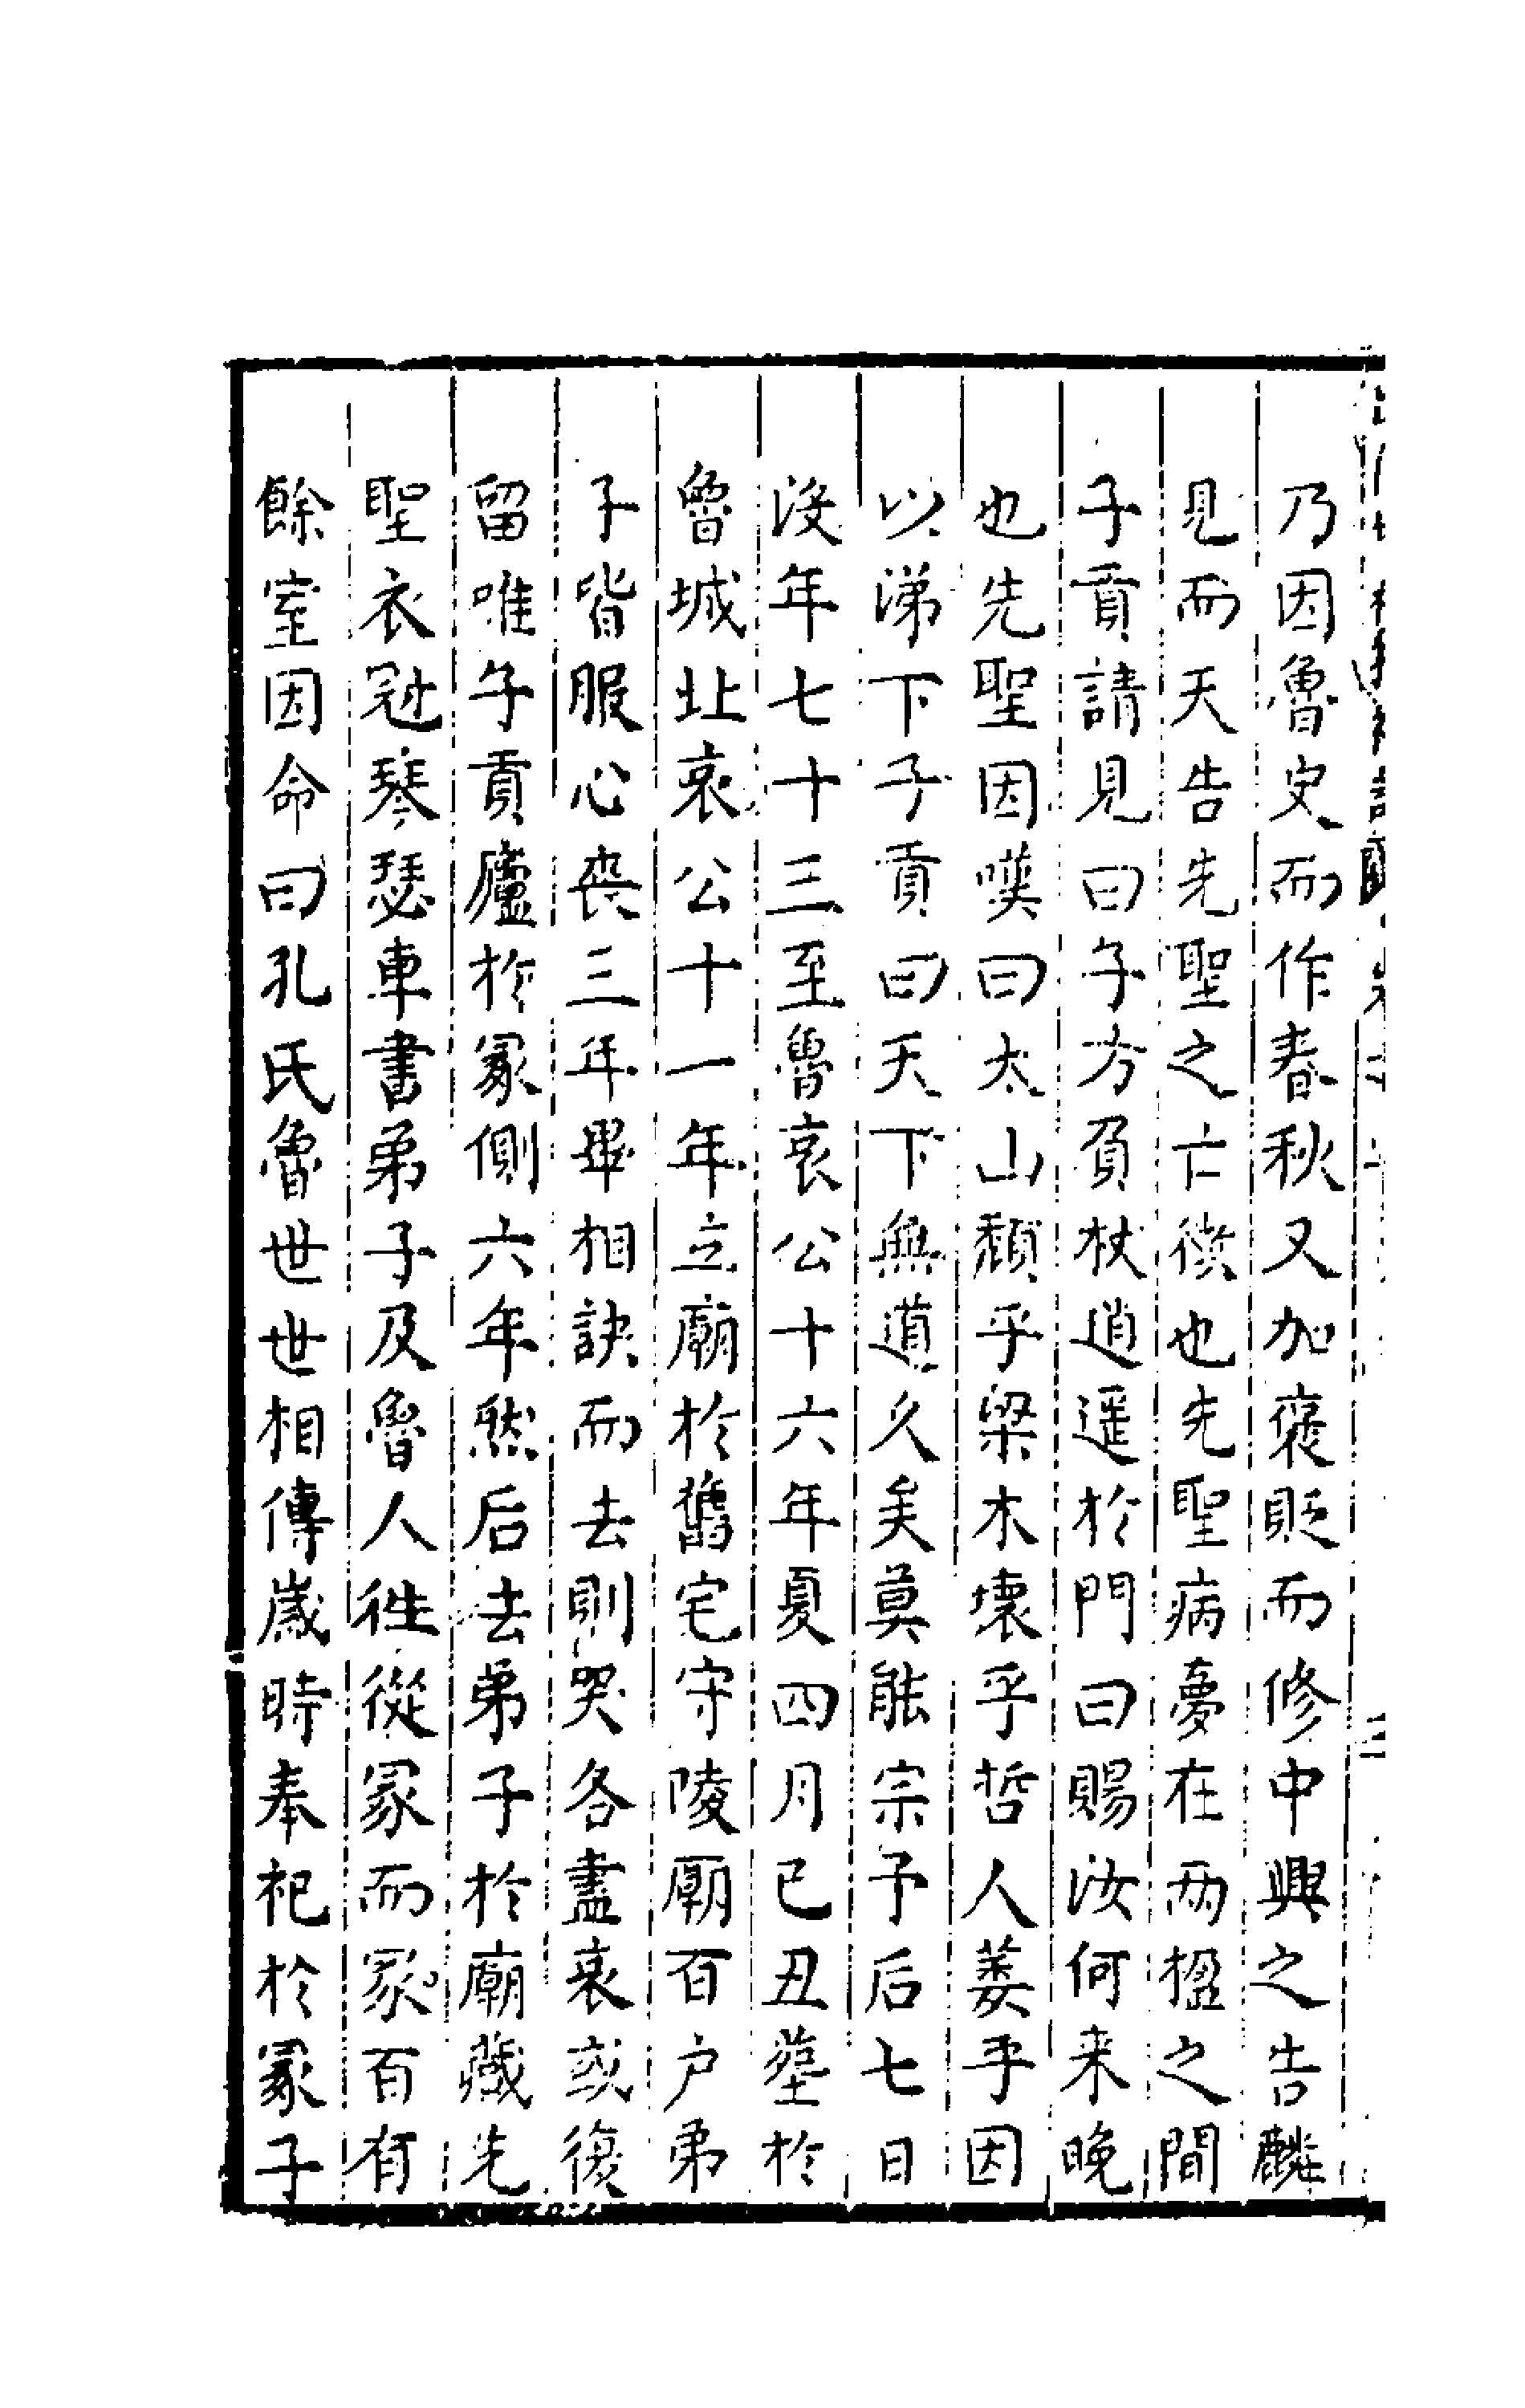 乃因魯史而作春秋又加褒貶而修中興之告麟
見而天告先聖之亡徵也先聖病夢在兩楹之間
子貢請見曰子方負杖逍遥於門曰賜汝何来晚
也先聖因嘆曰太山頽乎梁木壞乎哲人萎乎因
以涕下子貢曰天下無道久矣莫能宗予后七日
没年七十三至魯哀公十六年夏四月已丑塟於
魯城北哀公十一年立廟於舊宅守陵廟百户弟
子皆服心喪三年畢相訣而去則哭各盡哀或復
留唯子貢廬於冢側六年然后去弟子於廟藏先
聖衣冠琴瑟車書弟子及魯人徃從冢而家百有
餘室因命曰孔氏魯世世相傳歲時奉祀於冢子